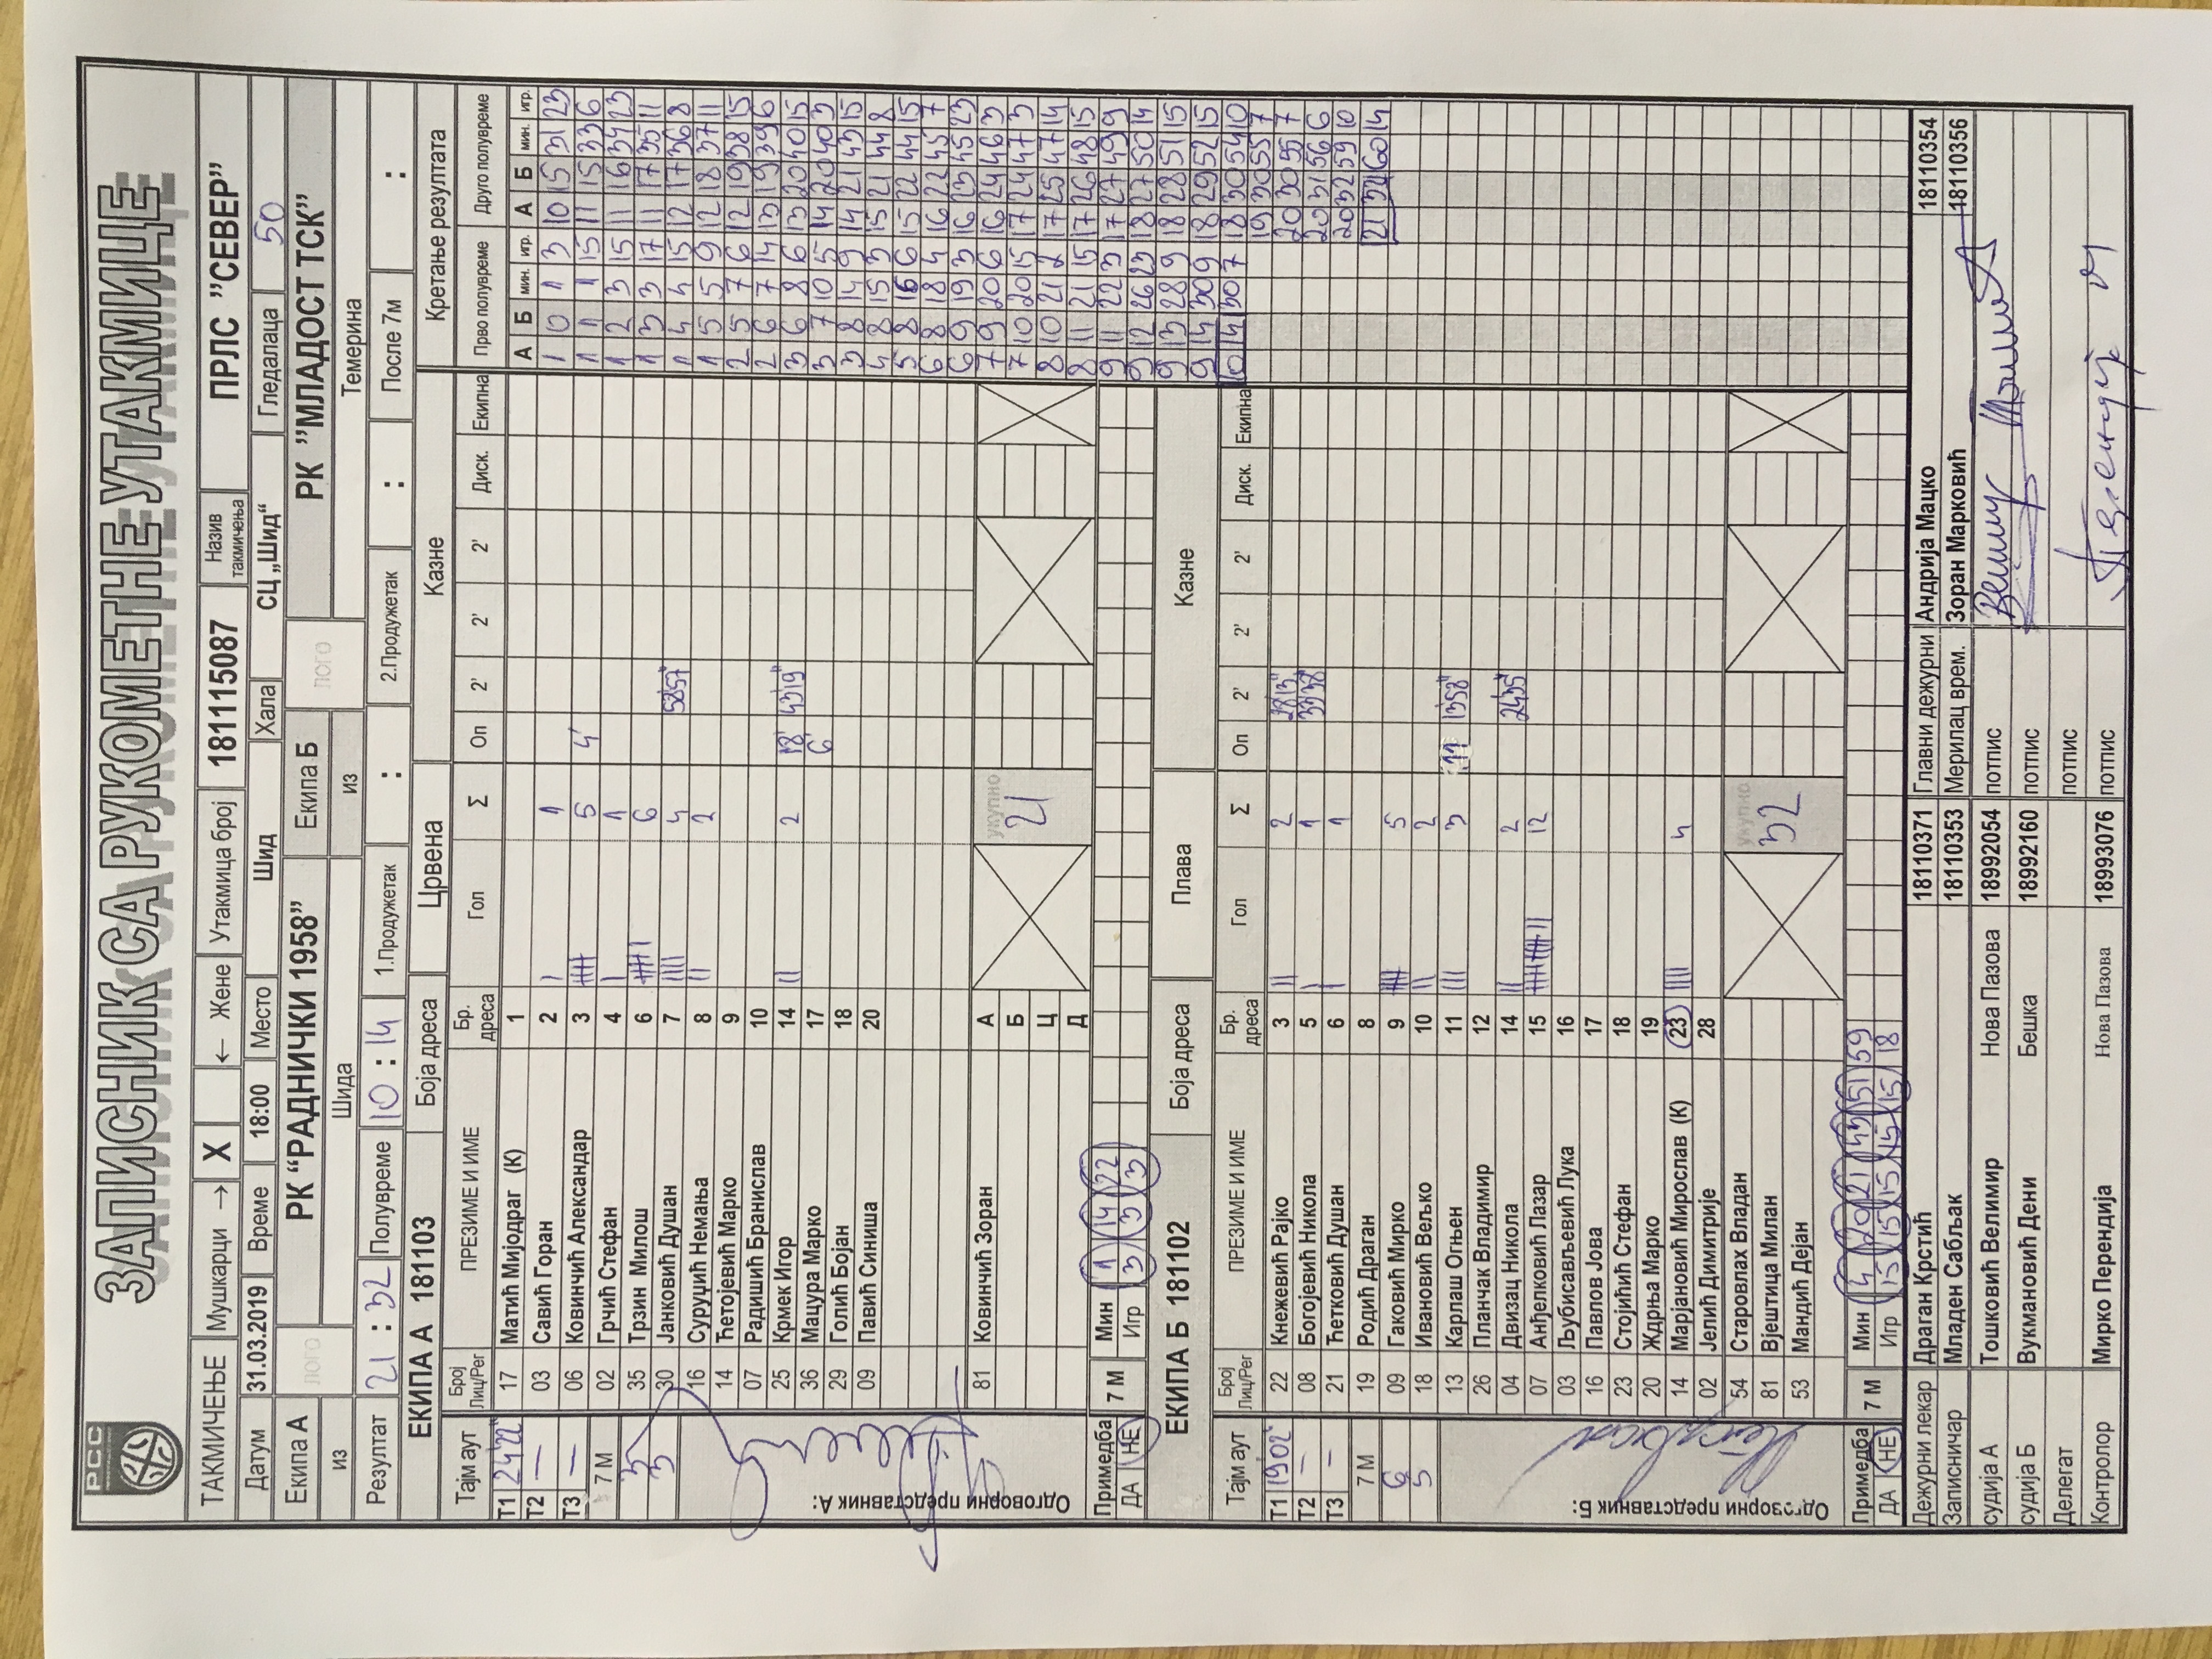 РСС
ЗАПИСНИК СА РУКОМЕТНЕ УТАКМИЦЕ
ТАКМИЧЕЊЕ Мушкарци → X ← Жене Утакмица број 181115087 Назив такмичења ПРЛС "СЕВЕР"
Датум 31.03.2019 Време 18:00 Место Шид Хала СЦ „Шид“ Гледалаца 50
Екипа А лого РК “РАДНИЧКИ 1958” Екипа Б лого РК "МЛАДОСТ ТСК"
из Шида из Темерина
Резултат 21 : 32 Полувреме 10 : 14 1.Продужетак : 2.Продужетак : После 7м :
ЕКИПА А 181103 Боја дреса Црвена Казне Кретање резултата
Тајм аут Број Лиц/Рег ПРЕЗИМЕ И ИМЕ Бр. дреса Гол Σ Оп 2' 2' 2' Диск. Екипна Прво полувреме Друго полувреме
А Б мин. игр. А Б мин. игр.
Т1 24'22"
Т2 —
Т3 —
7 М
3
3
17 Матић Мијодраг (К) 1
03 Савић Горан 2 I 1
06 Ковинчић Александар 3 5 4'
02 Грчић Стефан 4 I 1
35 Трзин Милош 6 6
30 Јанковић Душан 7 IIII 4 58'57"
16 Суруџић Немања 8 II 2
14 Ћетојевић Марко 9
07 Радишић Бранислав 10
25 Крмек Игор 14 II 2 18' 43'19"
36 Мацура Марко 17 6'
29 Голић Бојан 18
09 Павић Синиша 20
81 Ковинчић Зоран А
Б
Ц
Д
укупно 21
Одговорни представник А:
Примедба ДА НЕ 7 М Мин 1 14 22
Игр 3 3 3
1 0 1 3 10 15 31 23
1 1 1 15 11 15 33 6
1 2 3 15 11 16 34 23
1 3 3 17 11 17 35 11
1 4 4 15 12 17 36 8
1 5 5 9 12 18 37 11
2 5 7 6 12 19 38 15
2 6 7 14 13 19 39 6
3 6 8 6 13 20 40 15
3 7 10 5 14 20 40 3
3 8 14 9 14 21 43 15
4 8 15 3 15 21 44 8
5 8 16 6 15 22 44 15
6 8 18 4 16 22 45 7
6 9 19 3 16 23 45 23
7 9 20 6 16 24 46 3
7 10 20 15 17 24 47 3
8 10 21 7 17 25 47 14
8 11 21 15 17 26 48 15
9 11 22 3 17 27 49 9
9 12 26 23 18 27 50 14
9 13 28 9 18 28 51 15
9 14 30 9 18 29 52 15
10 14 30 7 18 30 54 10
19 30 55 7
20 30 55 7
20 31 56 6
20 32 59 10
21 32 60 14
ЕКИПА Б 181102 Боја дреса Плава Казне
Тајм аут Број Лиц/Рег ПРЕЗИМЕ И ИМЕ Бр. дреса Гол Σ Оп 2' 2' 2' Диск. Екипна
Т1 19'02"
Т2 —
Т3 —
7 М
6
5
22 Кнежевић Рајко 3 II 2 28'13"
08 Богојевић Никола 5 I 1 33'38"
21 Ћетковић Душан 6 I 1
19 Родић Драган 8
09 Гаковић Мирко 9 5
18 Ивановић Вељко 10 II 2
13 Карлаш Огњен 11 III 3 11' 13'58"
26 Планчак Владимир 12
04 Двизац Никола 14 II 2 24'35"
07 Анђелковић Лазар 15 12
03 Љубисављевић Лука 16
16 Павлов Јова 17
23 Стојичић Стефан 18
20 Ждрња Марко 19
14 Марјановић Мирослав (К) 23 IIII 4
02 Јелић Димитрије 28
54 Старовлах Владан
81 Вјештица Милан
53 Мандић Дејан
укупно 32
Одговорни представник Б:
Примедба ДА НЕ 7 М Мин 4 20 21 43 51 59
Игр 15 15 15 15 15 18
Дежурни лекар Драган Крстић 18110371 Главни дежурни Андрија Мацко 18110354
Записничар Младен Сабљак 18110353 Мерилац врем. Зоран Марковић 18110356
судија А Тошковић Велимир Нова Пазова 18992054 потпис
судија Б Вукмановић Дени Бешка 18992160 потпис
Делегат потпис
Контролор Мирко Перендија Нова Пазова 18993076 потпис